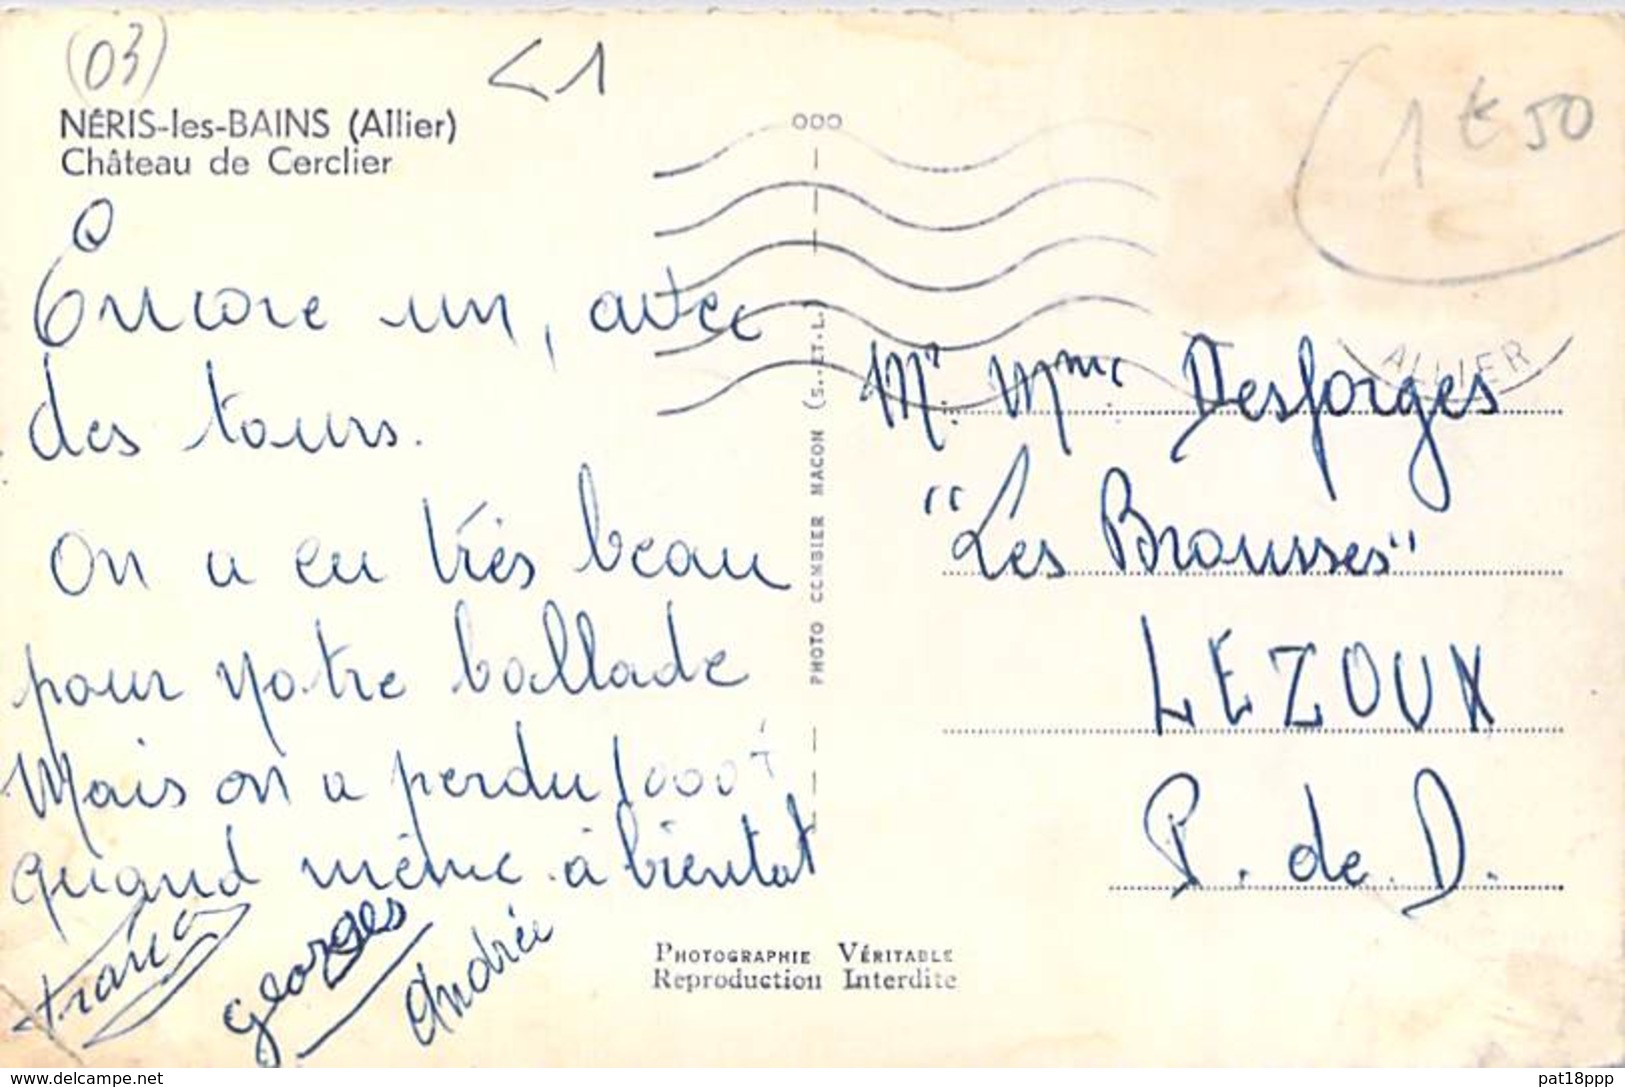 (03)
<1
1€50
NÉRIS-les-BAINS (Allier)
Château de Cerclier
Encore un, avec
des tours.
On a eu très beau
pour notre ballade
Mais on a perdu 1000f
quand même. à bientot
Georges
Andrée
PHOTO COMBIER MACON (S.-ET-L.)
ALLIER
Mr. Mme Desforges
"Les Brousses"
LEZOUX
P. de D.
PHOTOGRAPHIE VÉRITABLE
Reproduction Interdite
www.delcampe.net
pat18ppp